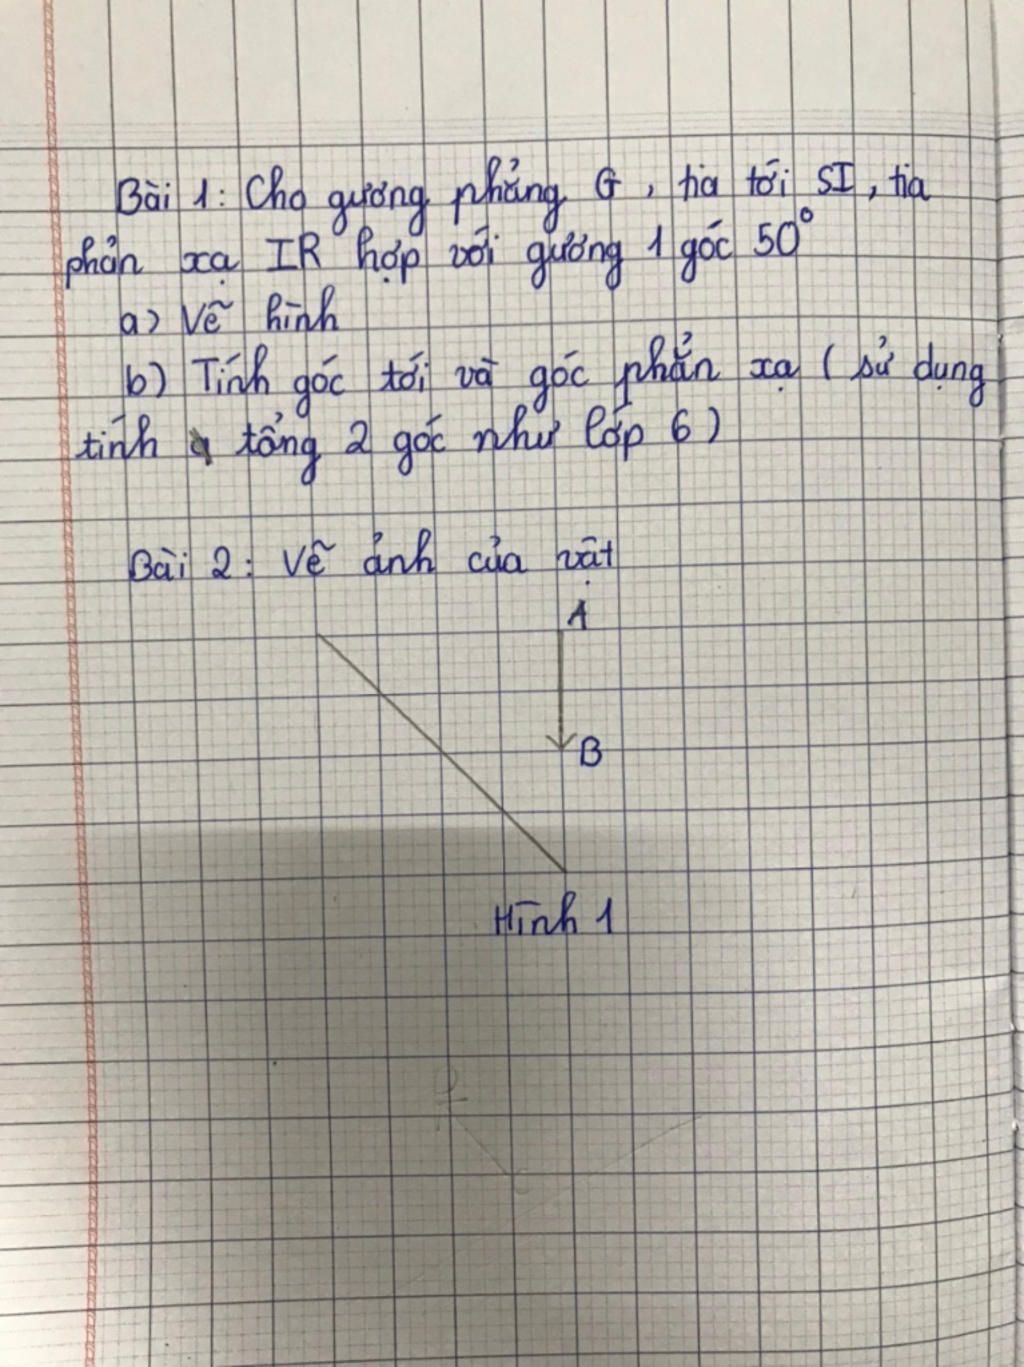 Bài 1: Cho gương phẳng G, tia tới SI, tia
phản xạ IR hợp với gương 1 góc 50°
a) Vẽ hình
b) Tính góc tới và góc phản xạ ( sử dụng
tính tổng 2 góc như lớp 6)
Bài 2: Vẽ ảnh của vật
A
B
Hình 1